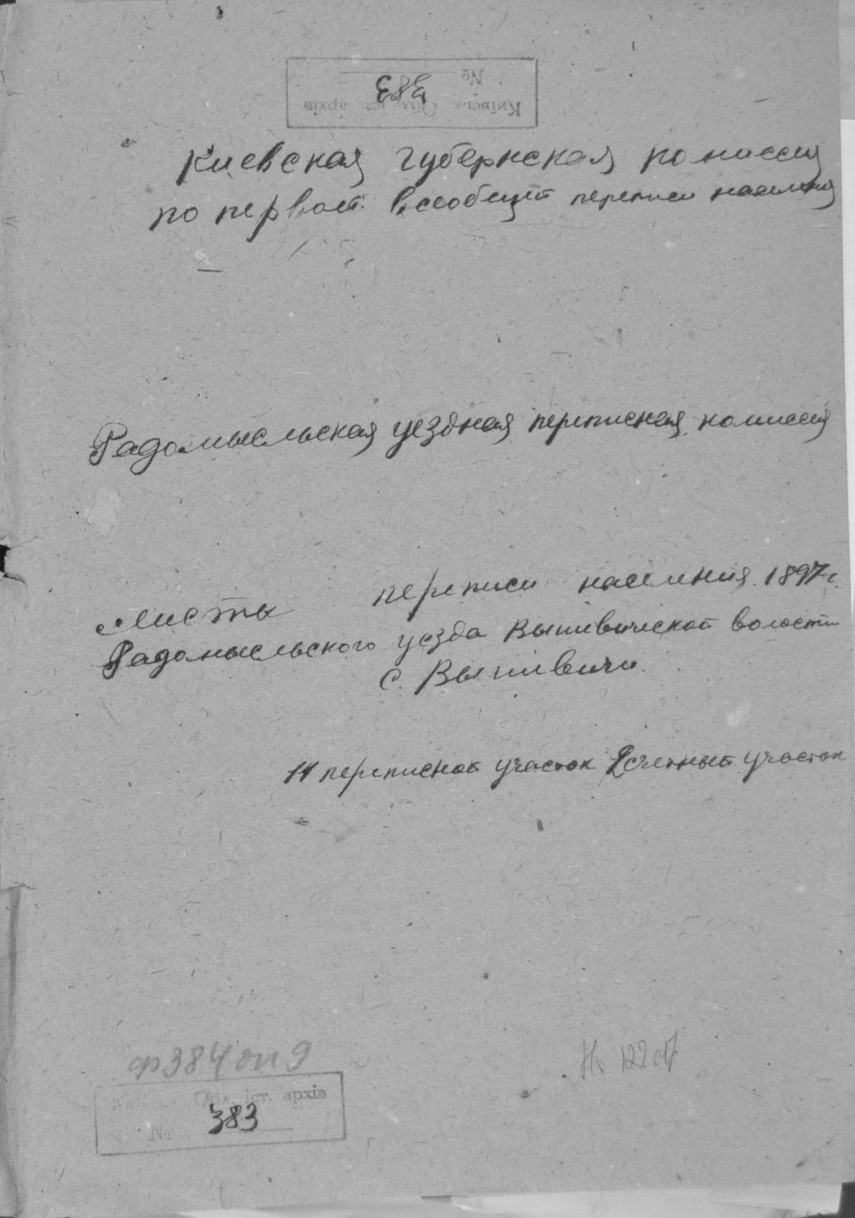 № 383
Київськ. Обл. іст. архів
Киевская губернская комиссия
по первой всеобщей переписи населения
Радомысльская уездная переписная комиссия
Листы переписи населения 1897 г.
Радомысльского уезда Вышевичской волости
с. Вышевичи
11 переписной участок 2 счетный участок
ф 384 оп 9
На 122 л
Обл. іст. архів
№ 383